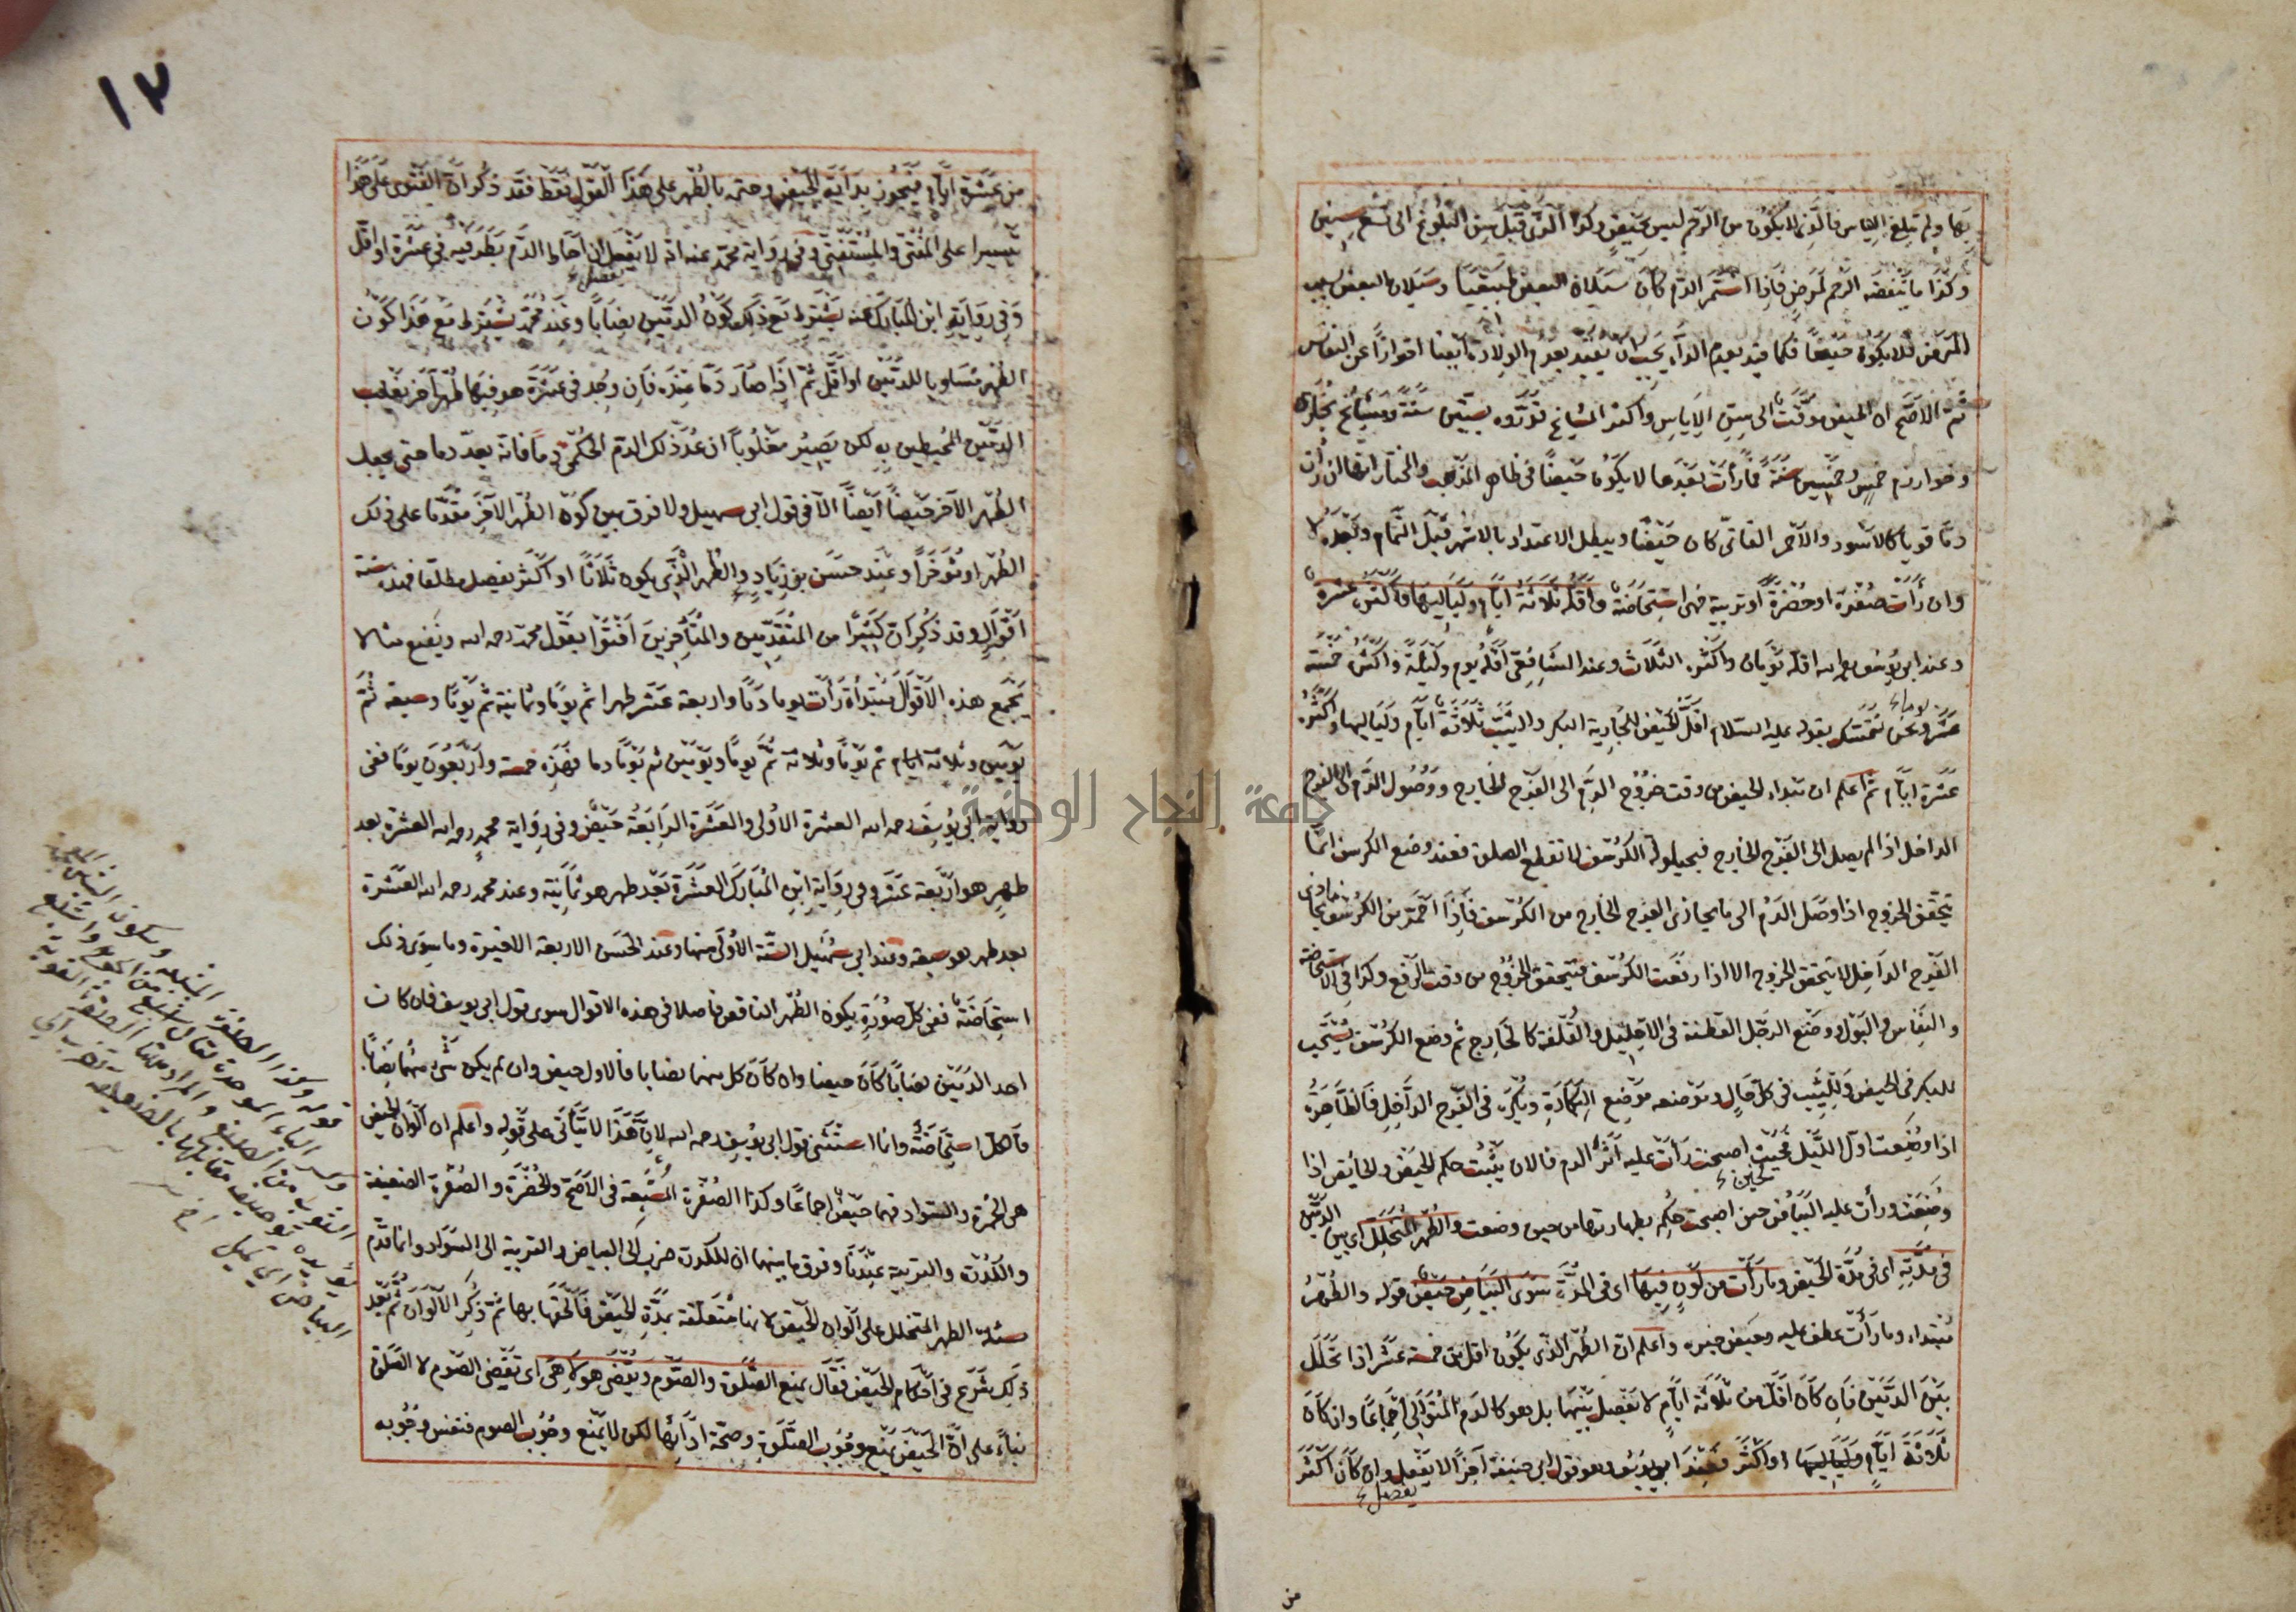 بها ولم تبلغ الاياس فالذى لا يكون من الرحم ليس بحيض وكذا الذى قبل سن البلوغ اى تسع سنين
وكذا ما ينفضه الرحم لمرض فاذا استمر الدم كان سيلان البعض طبيعيا وسيلان البعض بسبب
المرض فلا يكون حيضا فكما قيد بعدم الداء يجب ان يقيد بعدم الولادة ايضا احترازا عن النفاس
ثم الاصح ان الحيض موقت الى سن الاياس واكثر المشايخ قدروه بستين سنة ومشايخ بخارى
وخوارزم خمس وخمسين سنة فما رأت بعدها لا يكون حيضا فى ظاهر المذهب والمختار انها ان رأت
دما قويا كالاسود والاحمر القانى كان حيضا ويبطل الاعتداد بالاشهر قبل التمام وبعده لا
وان رأت صفرة او خضرة او تربية فهى استحاضة واقله ثلاثة ايام ولياليها واكثره عشرة
وعند ابى يوسف رحمه الله اقله يومان واكثر الثلاث وعند الشافعى اقله يوم وليلة واكثره خمسة
عشر يوما ونحن نتمسك بقوله عليه السلام اقل الحيض للجارية البكر والثيب ثلاثة ايام ولياليها واكثره
عشرة ايام ثم اعلم ان مبتداء الحيض من وقت خروج الدم الى الفرج الخارج ووصول الدم الى الفرج
الداخل اذا لم يصل الى الفرج الخارج فبحيلولة الكرسف لا تقطع الصلوة فعند وضع الكرسف انما
يتحقق الخروج اذا وصل الدم الى ما يحاذى الفرج الخارج من الكرسف فاذا احمر من الكرسف ما يحاذى
الفرج الداخل لا يتحقق الخروج الا اذا رفعت الكرسف فيتحقق الخروج من وقت الرفع وكذا فى الاستحاضة
والنفاس والبول ووضع الرجل القطنة فى الاحليل والقلفة كالخارج ثم وضع الكرسف يستحب
للبكر فى الحيض وللثيب فى كل حال وموضعه موضع البكارة ويكره فى الفرج الداخل فالطاهرة
اذا وضعت اول الليل فحين اصبحت رأت عليه اثر الدم فالان يثبت حكم الحيض والحائض اذا
وضعت ورأت عليه البياض حين اصبحت حكم بطهارتها من حين وضعت والطهر المتخلل اى بين الدمين
فى مدته اى فى مدة الحيض وما رأت من لون فيها اى فى المدة سوى البياض حيض قوله والطهر
مبتداء وما رأت عطف عليه وحيض خبره واعلم ان الطهر الذى يكون اقل من خمسة عشر اذا تخلل
بين الدمين فان كان اقل من ثلاثة ايام لا يفصل بينهما بل هو كالدم المتوالى اجماعا وان كان
ثلاثة ايام ولياليها او اكثر فعند ابى يوسف وهو قول ابى حنيفة اخرا لا يفصل وان كان اكثر
من
١٢
من عشرة ايام فيجوز بداية الحيض وختمه بالطهر على هذا القول فقط فقد ذكر ان الفتوى على هذا
تيسيرا على المفتى والمستفتى وفى رواية محمد عنه انه لا يفصل ان احاط الدم بطرفيه فى عشرة او اقل
وفى رواية ابن المبارك عنه يشترط مع ذلك كون الدمين نصابا وعند محمد يشترط مع هذا كون
الطهر مساويا للدمين او اقل ثم اذا صار دما عنده فان وجد فى عشرة هو فيها طهر آخر يغلب
الدمين المحيطين به لكن يصير مغلوبا ان عد ذلك الدم الحكمى دما فانه يعد دما حتى يجعل
الطهر الآخر حيضا ايضا الا فى قول ابى سهيل ولا فرق بين كون الطهر الآخر مقدما على ذلك
الطهر او مؤخرا وعند حسن بن زياد والطهر الذى يكون ثلاثا او اكثر يفصل مطلقا فهذه ستة
اقوال وقد ذكر ان كثيرا من المتقدمين والمتأخرين افتوا بقول محمد رحمه الله ونضع مثالا
يجمع هذه الاقوال مبتدأة رأت يوما دما واربعة عشر طهرا ثم يوما وثمانية ثم يوما وسبعة ثم
يومين وثلاثة ايام ثم يوما وثلاثة ثم يوما ويومين ثم يوما دما فهذه خمسة واربعون يوما ففى
رواية ابى يوسف رحمه الله العشرة الاولى والعشرة الرابعة حيض وفى رواية محمد رحمه الله العشرة بعد
طهر هو اربعة عشر وفى رواية ابن المبارك العشرة بعد طهر هو ثمانية وعند محمد رحمه الله العشرة
بعد طهر هو سبعة وعند ابى سهيل الستة الاولى منها وعند الحسن الاربعة الاخيرة وما سوى ذلك
استحاضة ففى كل صورة يكون الطهر الناقص فاصلا فى هذه الاقوال سوى قول ابى يوسف فان كان
احد الدمين نصابا كان حيضا وان كان كل منهما نصابا فالاول حيض وان لم يكن شئ منهما نصابا
فالكل استحاضة وانما استثنى قول ابى يوسف رحمه الله لان هذا لا يتأتى على قوله واعلم ان الوان الحيض
هى الحمرة والسواد فهما حيض اجماعا وكذا الصفرة المشبعة فى الاصح والخضرة والصفرة الضعيفة
والكدرة والتربية عندنا وفرق ما بينهما ان الكدرة تضرب الى البياض والتربية الى السواد وانما قدم
مسئلة الطهر المتخلل على الوان الحيض لانها متعلقة بمدة الحيض فالحقها بها ثم ذكر الالوان ثم بعد
ذلك شرع فى احكام الحيض فقال يمنع الصلوة والصوم ويقضى هو لا هى اى تقضى الصوم لا الصلوة
بناء على ان الحيض يمنع وجوب الصلوة وصحة ادائها لكن لا يمنع وجوب الصوم فنفس وجوبه